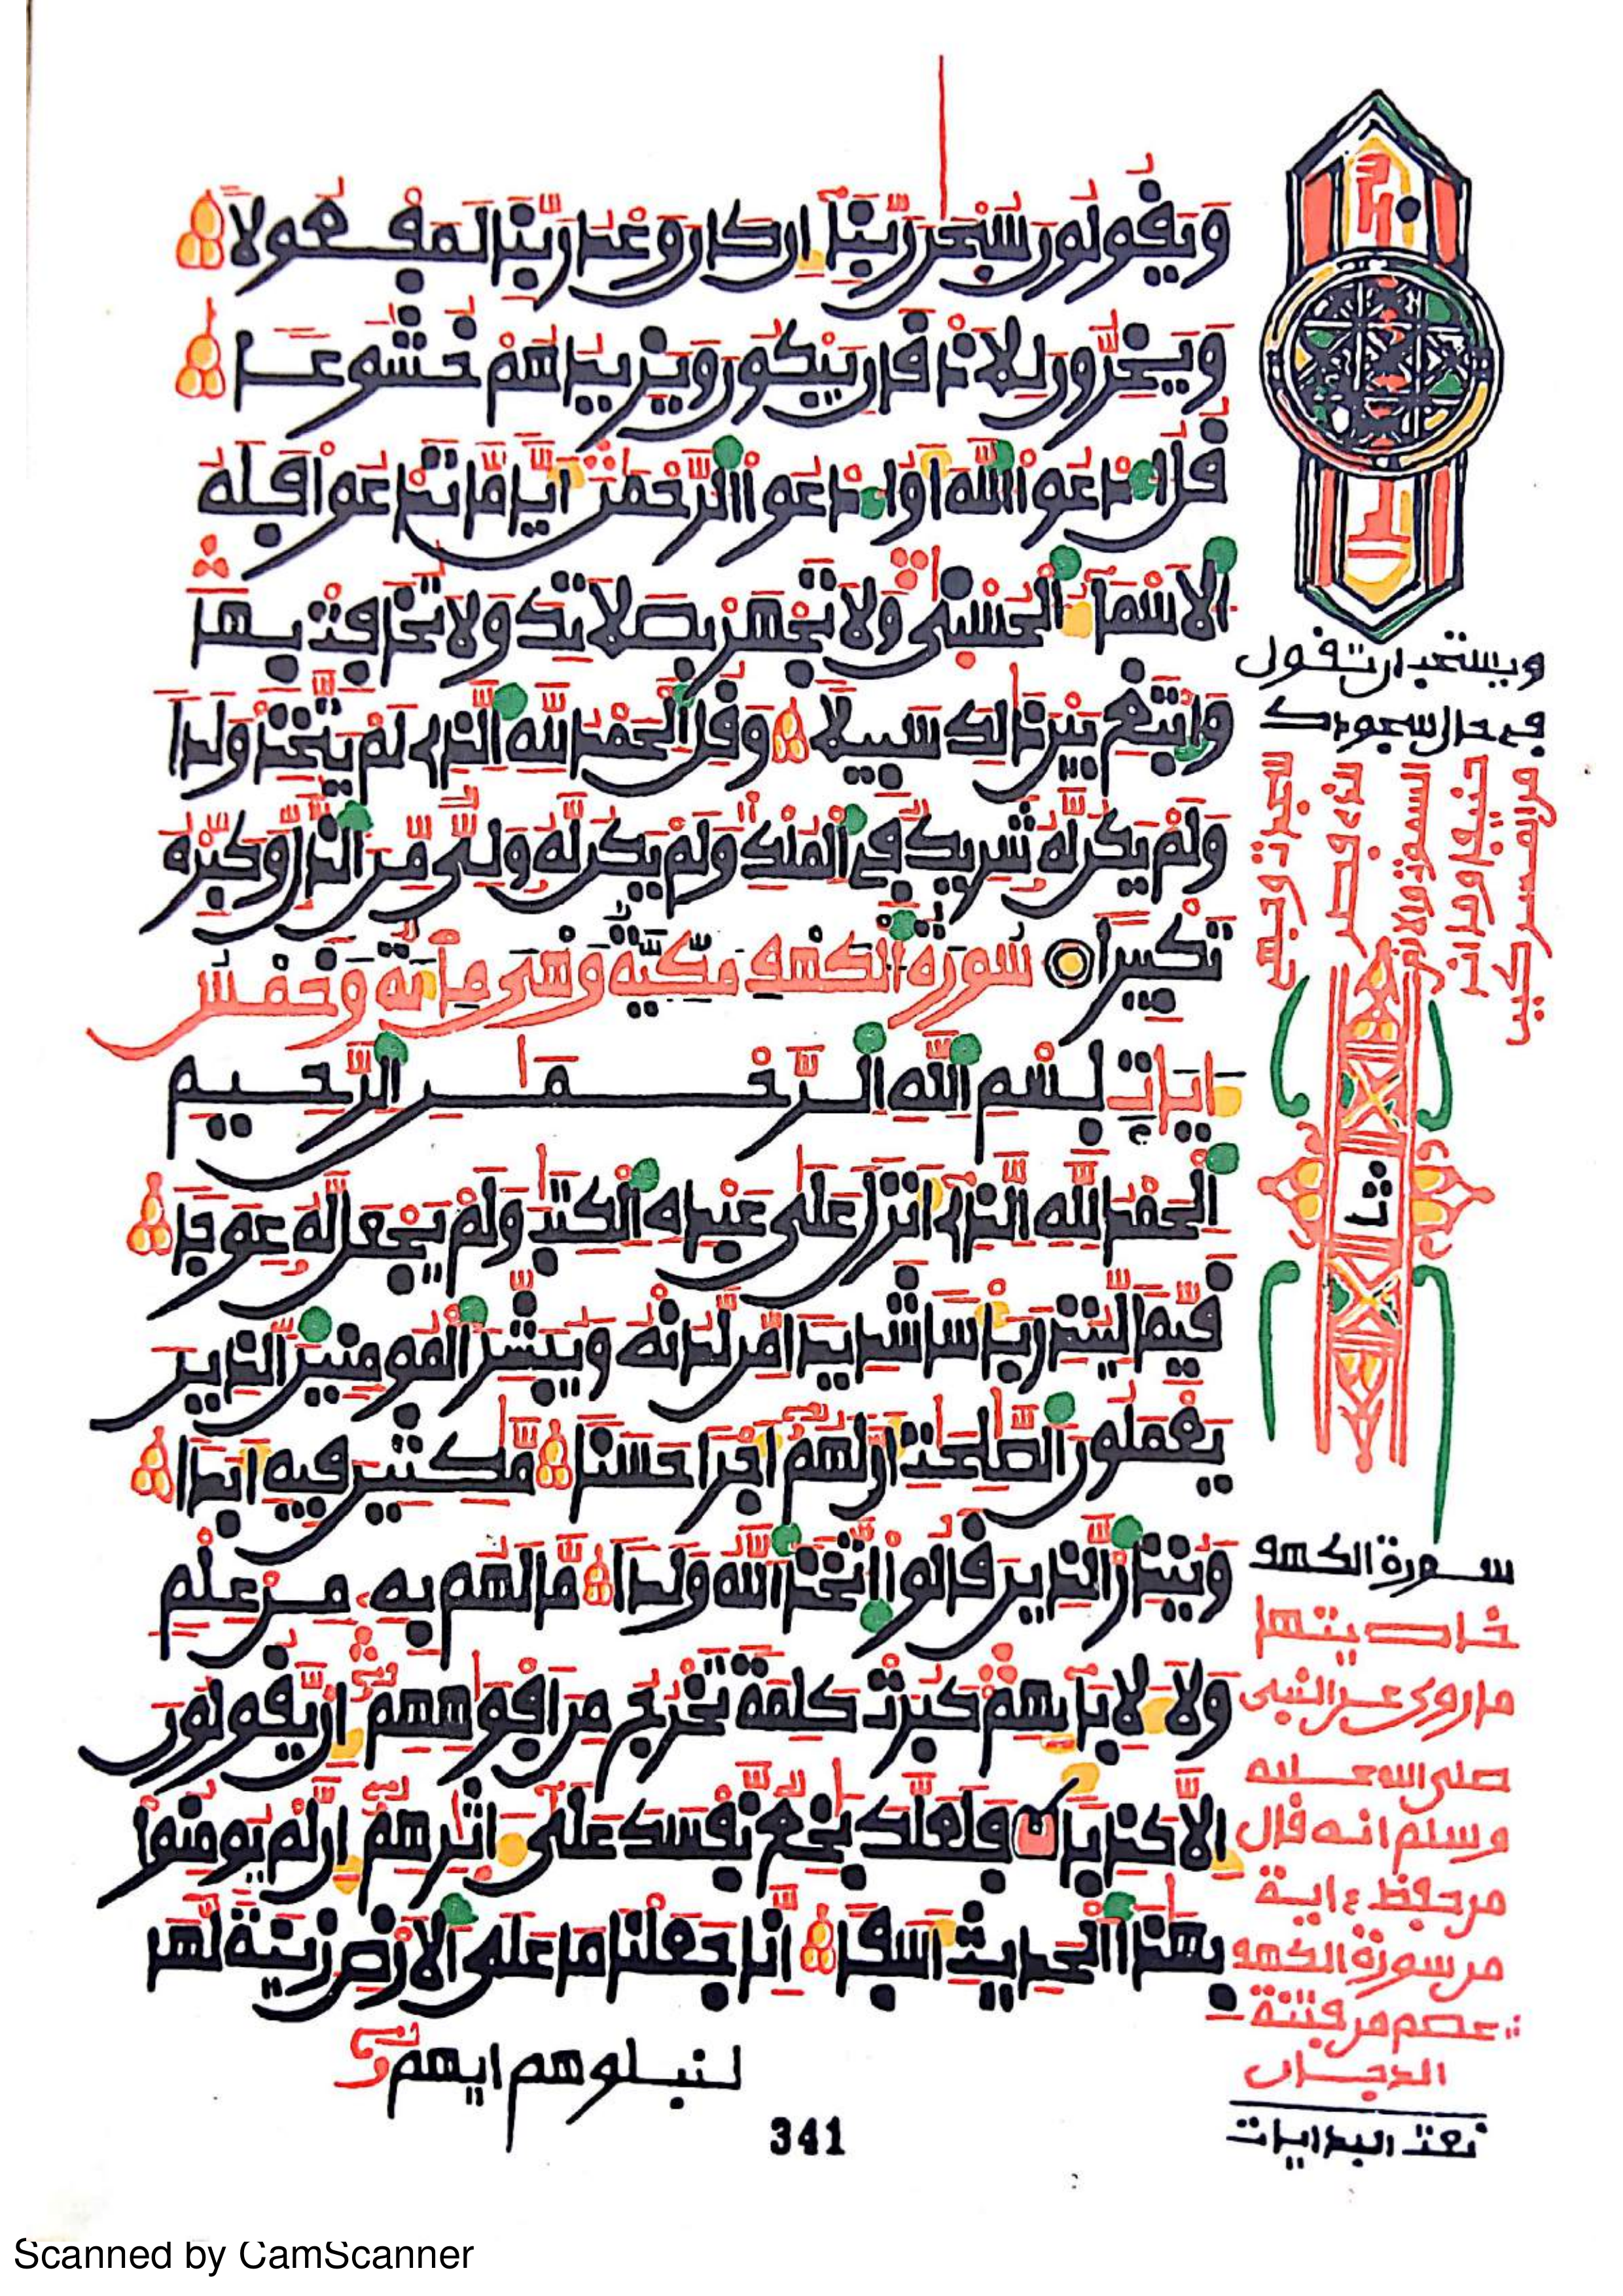 ويقولون سبحن ربنا إن كان وعد ربنا لمفعولا
ويخرون للاذقان يبكون ويزيدهم خشوعا
قل ادعوا الله أو ادعوا الرحمن أيا ما تدعوا فله
الاسماء الحسنى ولا تجهر بصلاتك ولا تخافت بها
وابتغ بين ذلك سبيلا وقل الحمد لله الذي لم يتخذ ولدا
ولم يكن له شريك في الملك ولم يكن له ولي من الذل وكبره
تكبيرا سورة الكهف مكية وهي مائة وخمس
ءايات بسم الله الرحمن الرحيم
الحمد لله الذي أنزل على عبده الكتب ولم يجعل له عوجا
قيما لينذر بأسا شديدا من لدنه ويبشر المومنين الذين
يعملون الصلحت أن لهم أجرا حسنا مكثين فيه أبدا
وينذر الذين قالوا اتخذ الله ولدا ما لهم به من علم
ولا لابائهم كبرت كلمة تخرج من افوههم إن يقولون
إلا كذبا فلعلك بخع نفسك على ءاثرهم إن لم يومنوا
بهذا الحديث أسفا إنا جعلنا ما على الارض زينة لها
لنبلوهم ايهم
341
ويستحب ان تقول
في حال سجودك
سورة الكهف
خاصيتها
ما روي عن النبي
صلى الله عليه
وسلم انه قال
من حفظ ءاية
من سورة الكهف
عصم من فتنة
الدجال
Scanned by CamScanner